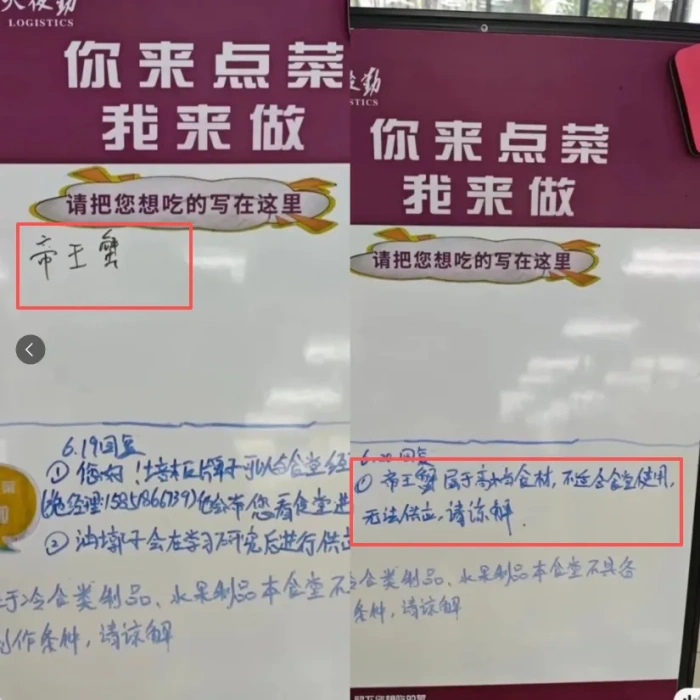 LOGISTICS
你来点菜
我来做
请把您想吃的写在这里
帝王蟹
6.19回复
① 您好！培根牌子可以与食堂经
(绝经理:15851866739)他会带您看食堂进
② 油墩子会在学习研究后进行供应
于冷食类制品、水果制品本食堂不
制作条件，请谅解
STICS
你来点菜
我来做
请把您想吃的写在这里
回复
① 帝王蟹属于高档食材，不适合食堂使用，
无法供应，请谅解.
冷食类制品、水果制品本食堂不具备
条件，请谅解